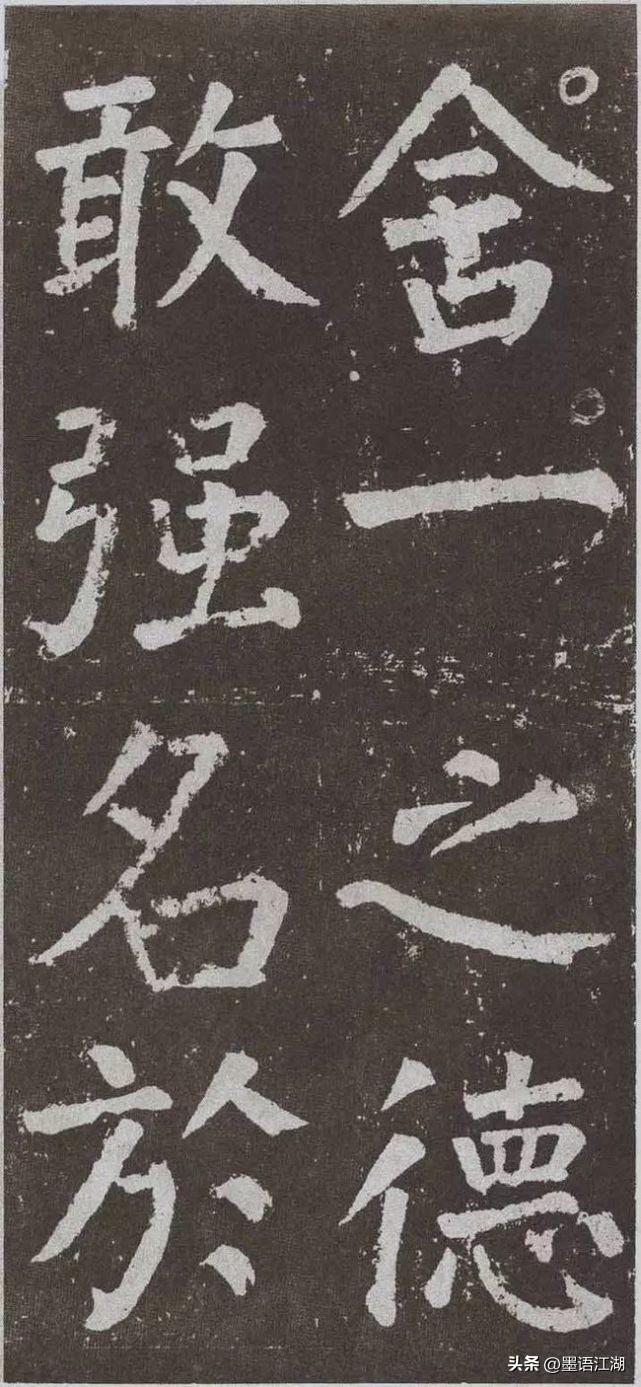 舍一之德
敢强名於
头条 @墨语江湖